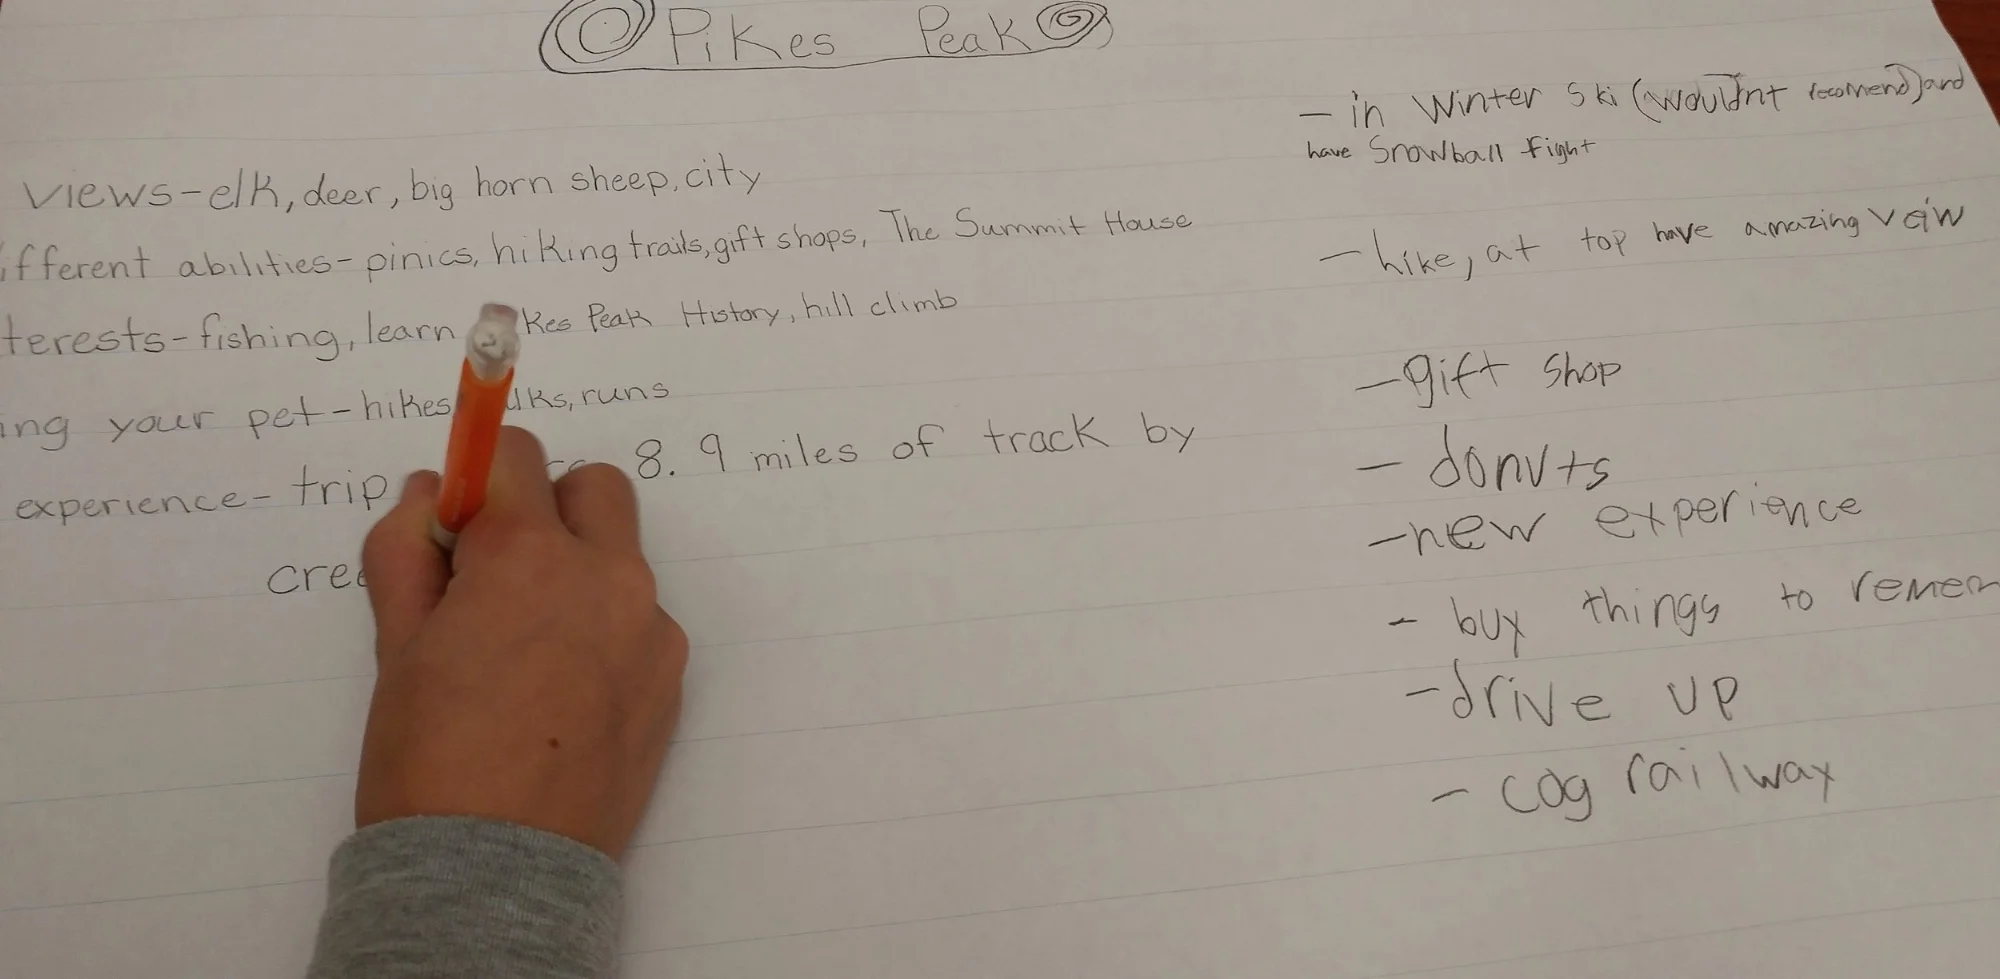 Pikes Peak
views-elk, deer, big horn sheep, city
ifferent abilities-pinics, hiking trails, gift shops, The Summit House
terests-fishing, learn kes Peak History, hill climb
ing your pet-hikes lks, runs
experience-trip 8.9 miles of track by
cree
- in winter ski (wouldnt recomend) and
have Snowball fight
- hike, at top have amazing veiw
- gift shop
- donuts
- new experience
- buy things to remem
- drive up
- cog railway